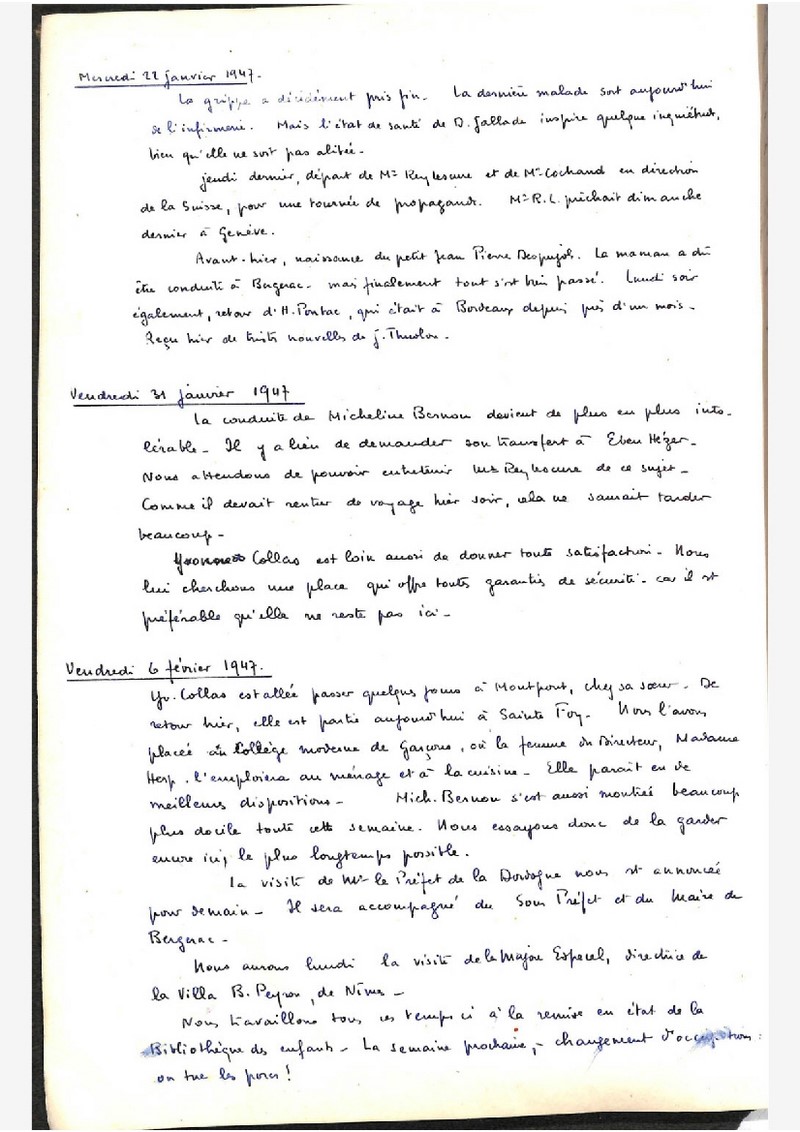 Mercredi 22 janvier 1947.
La grippe a décidément pris fin. La dernière malade sort aujourd'hui
de l'infirmerie. Mais l'état de santé de D. Gallade inspire quelque inquiétude,
bien qu'elle ne soit pas alitée.
jeudi dernier, départ de Mr Reylescure et de Mr Cochand en direction
de la Suisse, pour une tournée de propagande. Mr R.L. prêchait dimanche
dernier à Genève.
Avant-hier, naissance du petit Jean Pierre Despujols. La maman a dû
être conduite à Bergerac. mais finalement tout s'est bien passé. Lundi soir
également, retour d'H. Pontac, qui était à Bordeaux depuis près d'un mois.
Reçu hier de tristes nouvelles de J.
Vendredi 31 janvier 1947
La conduite de Micheline Bernou devient de plus en plus into-
lérable. Il y a lieu de demander son transfert à Eben Hézer.
Nous attendons de pouvoir entretenir Mr Reylescure de ce sujet.
Comme il devait rentrer de voyage hier soir, cela ne saurait tarder
beaucoup.
Yvonne Collas est loin aussi de donner toute satisfaction. Nous
lui cherchons une place qui offre toutes garanties de sécurité. car il est
préférable qu'elle ne reste pas ici.
Vendredi 6 février 1947.
Yv. Collas est allée passer quelques jours à Montpont, chez sa sœur. De
retour hier, elle est partie aujourd'hui à Sainte Foy. Nous l'avons
placée au Collège moderne de Garçons, où la femme du Directeur, Madame
Hesp. l'emploiera au ménage et à la cuisine. Elle paraît en de
meilleures dispositions. Mich. Bernou s'est aussi montrée beaucoup
plus docile toute cette semaine. Nous essayons donc de la garder
encore ici, le plus longtemps possible.
La visite de Mr le Préfet de la Dordogne nous est annoncée
pour demain. Il sera accompagné du Sous Préfet et du Maire de
Bergerac.
Nous aurons lundi la visite de la Majore Especel, directrice de
la Villa B. Peyron, de Nîmes.
Nous travaillons tous ces temps ci à la remise en état de la
Bibliothèque des enfants. La semaine prochaine, - changement d'occupations :
on tue les porcs !